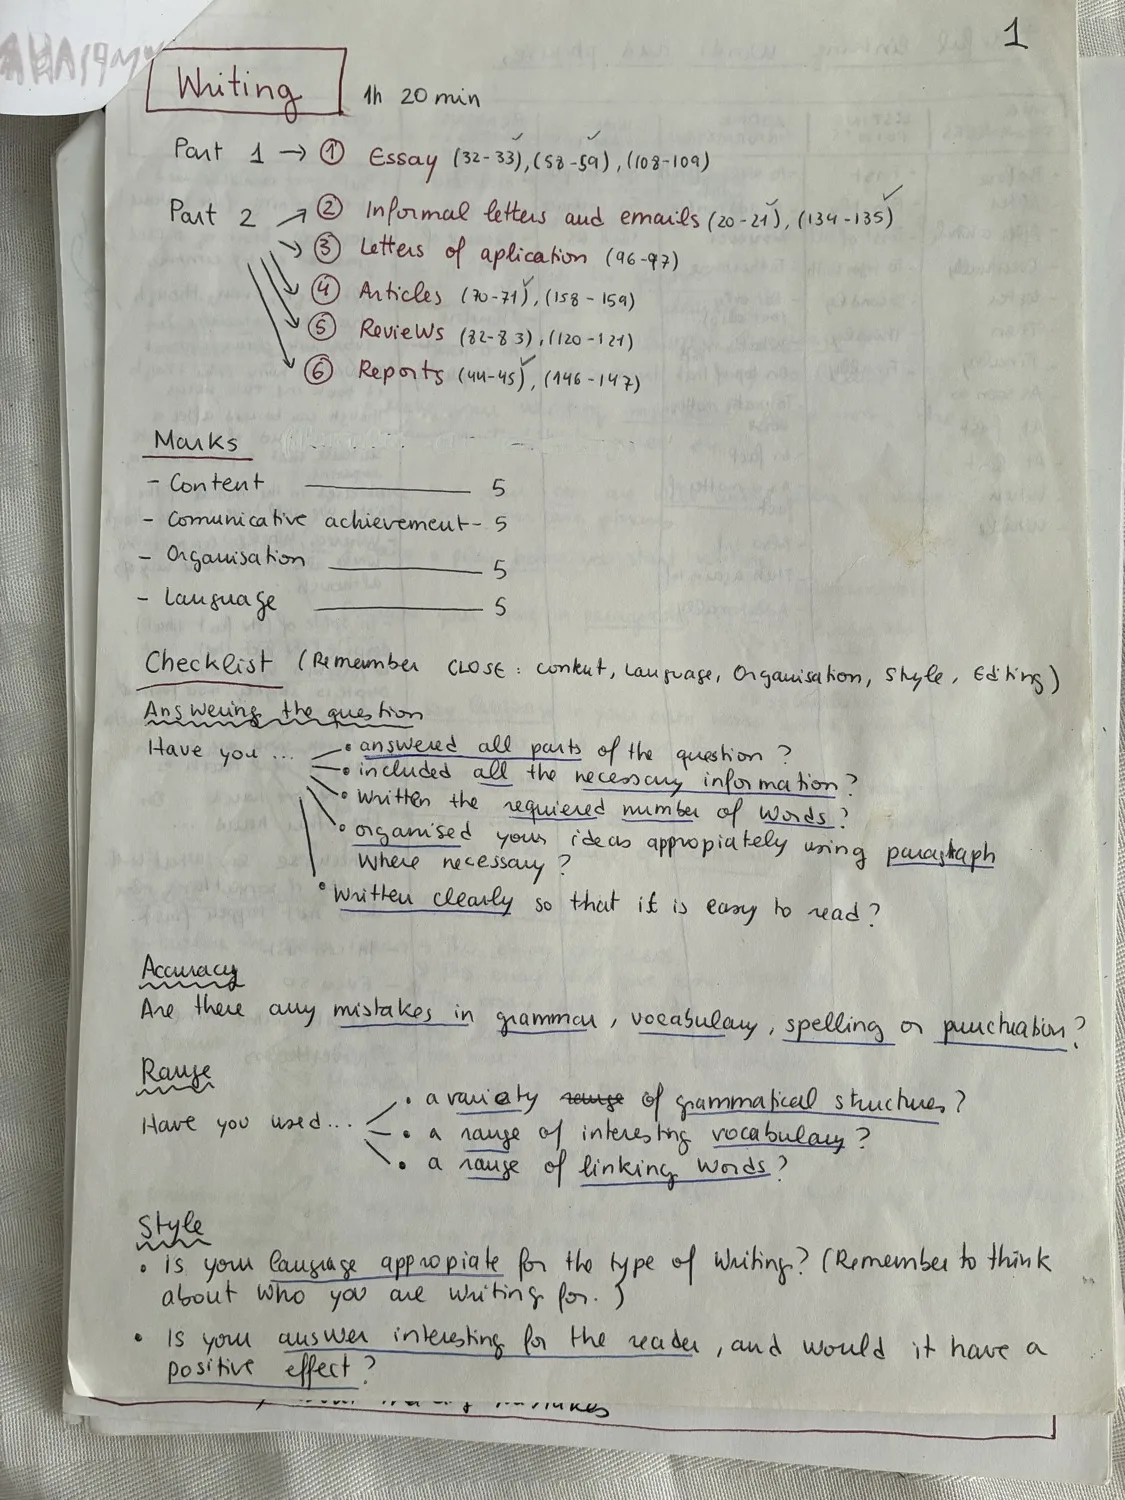 1
Writing 1h 20 min
Part 1 → ① Essay (32-33), (58-59), (108-109)
Part 2 → ② Informal letters and emails (20-21), (134-135)
③ Letters of aplication (96-97)
④ Articles (70-71), (158-159)
⑤ Reviews (82-83), (120-121)
⑥ Reports (44-45), (146-147)
Marks
- Content 5
- Comunicative achievement - 5
- Organisation 5
- Language 5
Checklist (Remember CLOSE: content, Language, Organisation, Style, Editing)
Answering the question
Have you ... • answered all parts of the question?
• included all the necessary information?
• written the requiered number of words?
• organised your ideas appropiately using paragraph
where necessary?
• written clearly so that it is easy to read?
Accuracy
Are there any mistakes in grammar, vocabulary, spelling or punctuation?
Range
Have you used... • a variety range of grammatical structures?
• a range of interesting vocabulary?
• a range of linking words?
Style
• Is your language appropiate for the type of writing? (Remember to think
about who you are writing for.)
• Is your answer interesting for the reader, and would it have a
positive effect?
mistakes